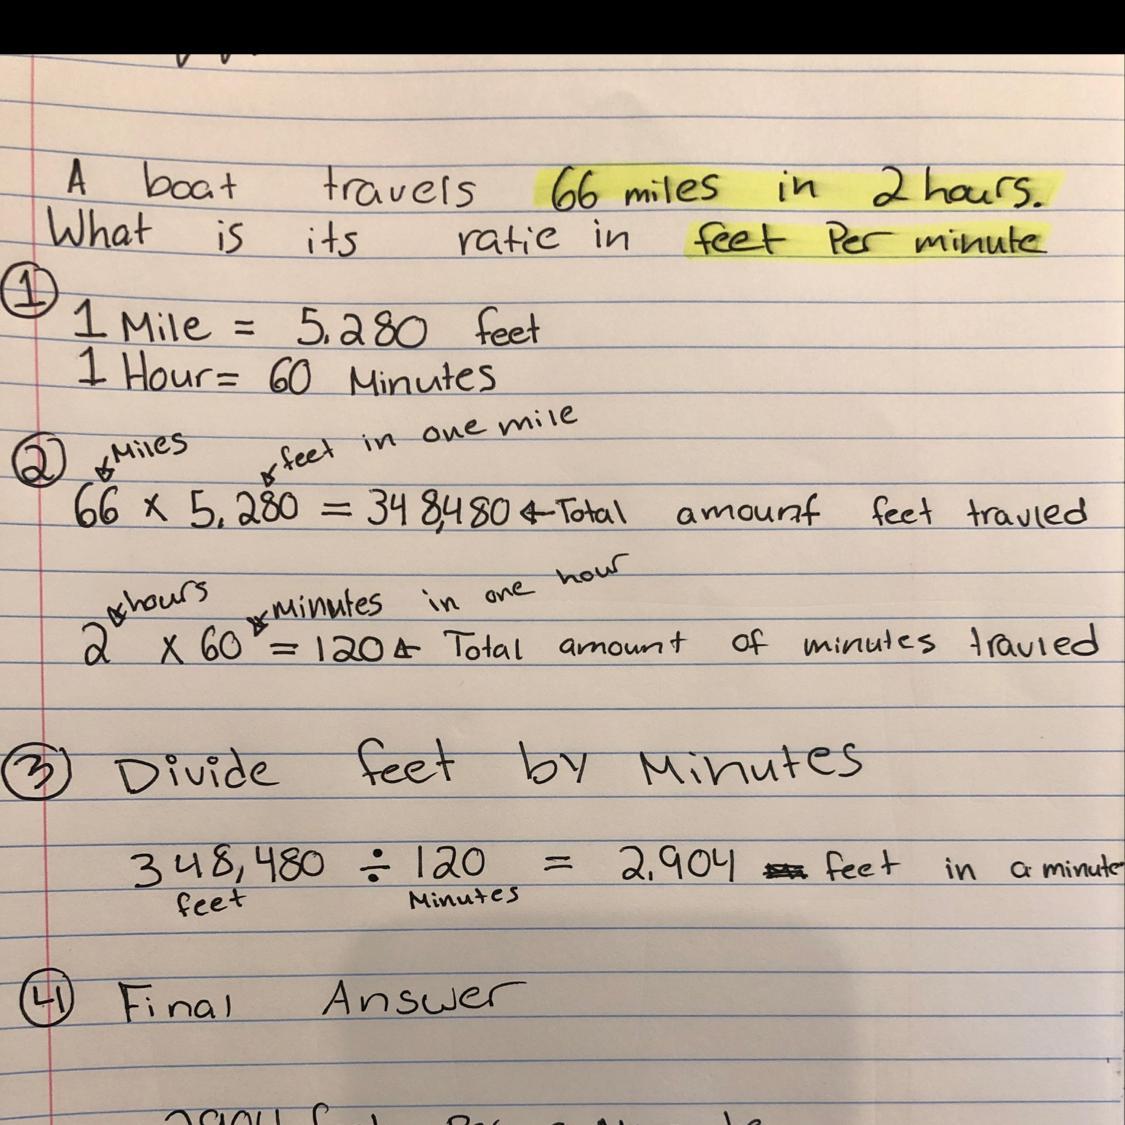 A boat travels 66 miles in 2 hours.
What is its ratie in feet Per minute
1
1 Mile = 5,280 feet
1 Hour = 60 Minutes
2
Miles feet in one mile
66 x 5,280 = 348,480 ← Total amounf feet travled
hours minutes in one hour
2 x 60 = 120 ← Total amount of minutes travled
3 Divide feet by Minutes
348,480 ÷ 120 = 2,904 feet in a minute
feet Minutes
4 Final Answer